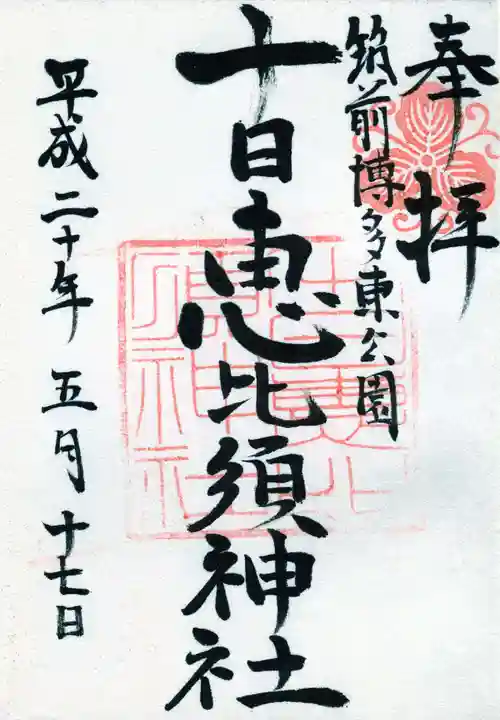 奉拝
筑前博多東公園
十日恵比須神社
平成二十年五月十七日